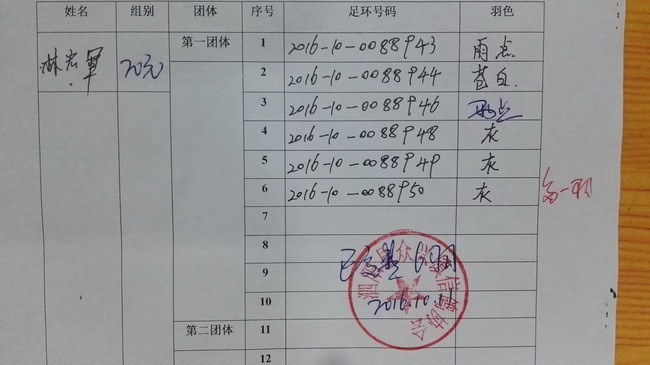 姓名 组别 团体 序号 足环号码 羽色
林宏军 20元 第一团体 1 2016-10-0088943 雨点
2 2016-10-0088944 苍白.
3 2016-10-0088946 雨点
4 2016-10-0088948 灰
5 2016-10-0088949 灰
6 2016-10-0088950 灰
7
8
9
10 2016.10.
第二团体 11
12